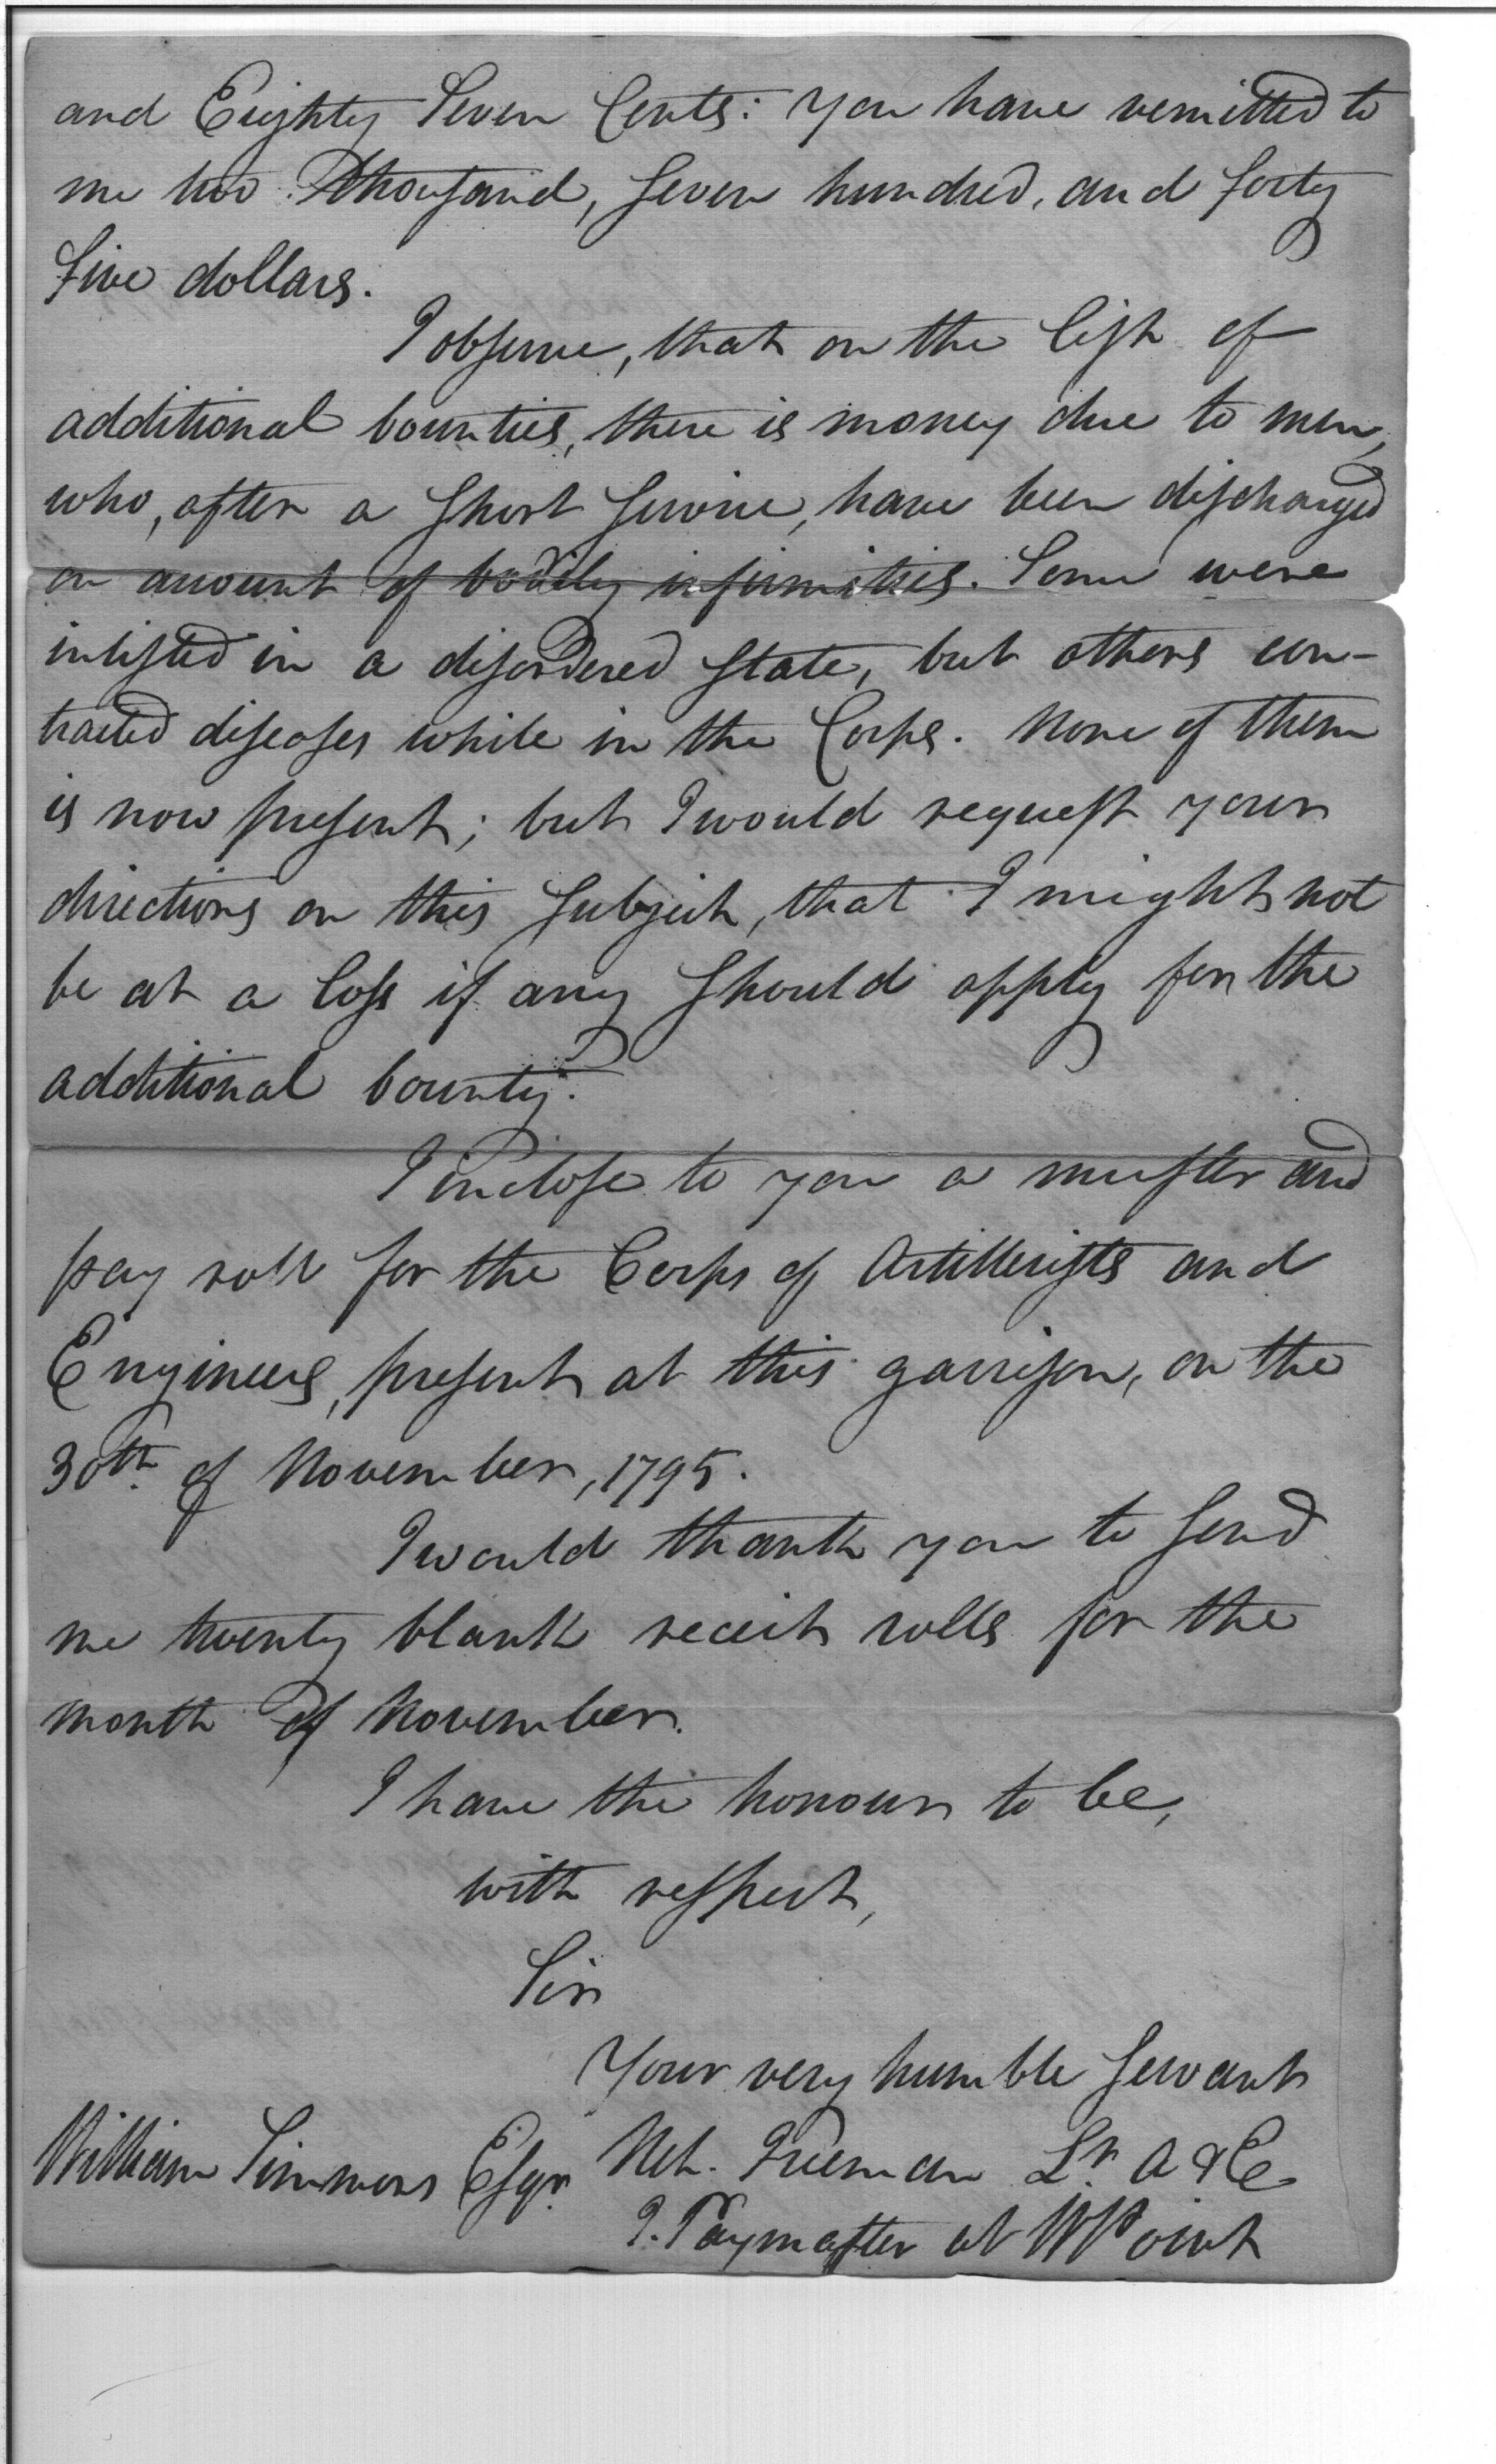 and Eighty Seven Cents: You have remitted to
me two thousand, seven hundred, and forty
five dollars.
I observe, that on the list of
additional bounties, there is money due to men,
who, after a short service, have been discharged
on account of bodily infirmities. Some were
inlisted in a disordered state, but others con-
tracted diseases while in the Corps. None of them
is now present; but I would request your
directions on this subject, that I might not
be at a loss if any should apply for the
additional bounty.
I inclose to you a muster and
pay roll for the Corps of Artillerists and
Engineers, present at this garrison, on the
30th of November, 1795.
I would thank you to send
me twenty blank receit rolls for the
month of November.
I have the honour to be,
with respect,
Sir
Your very humble servant
William Simmons Esqr. Neh. Freeman Lt. A & E
P. Paymaster at W Point